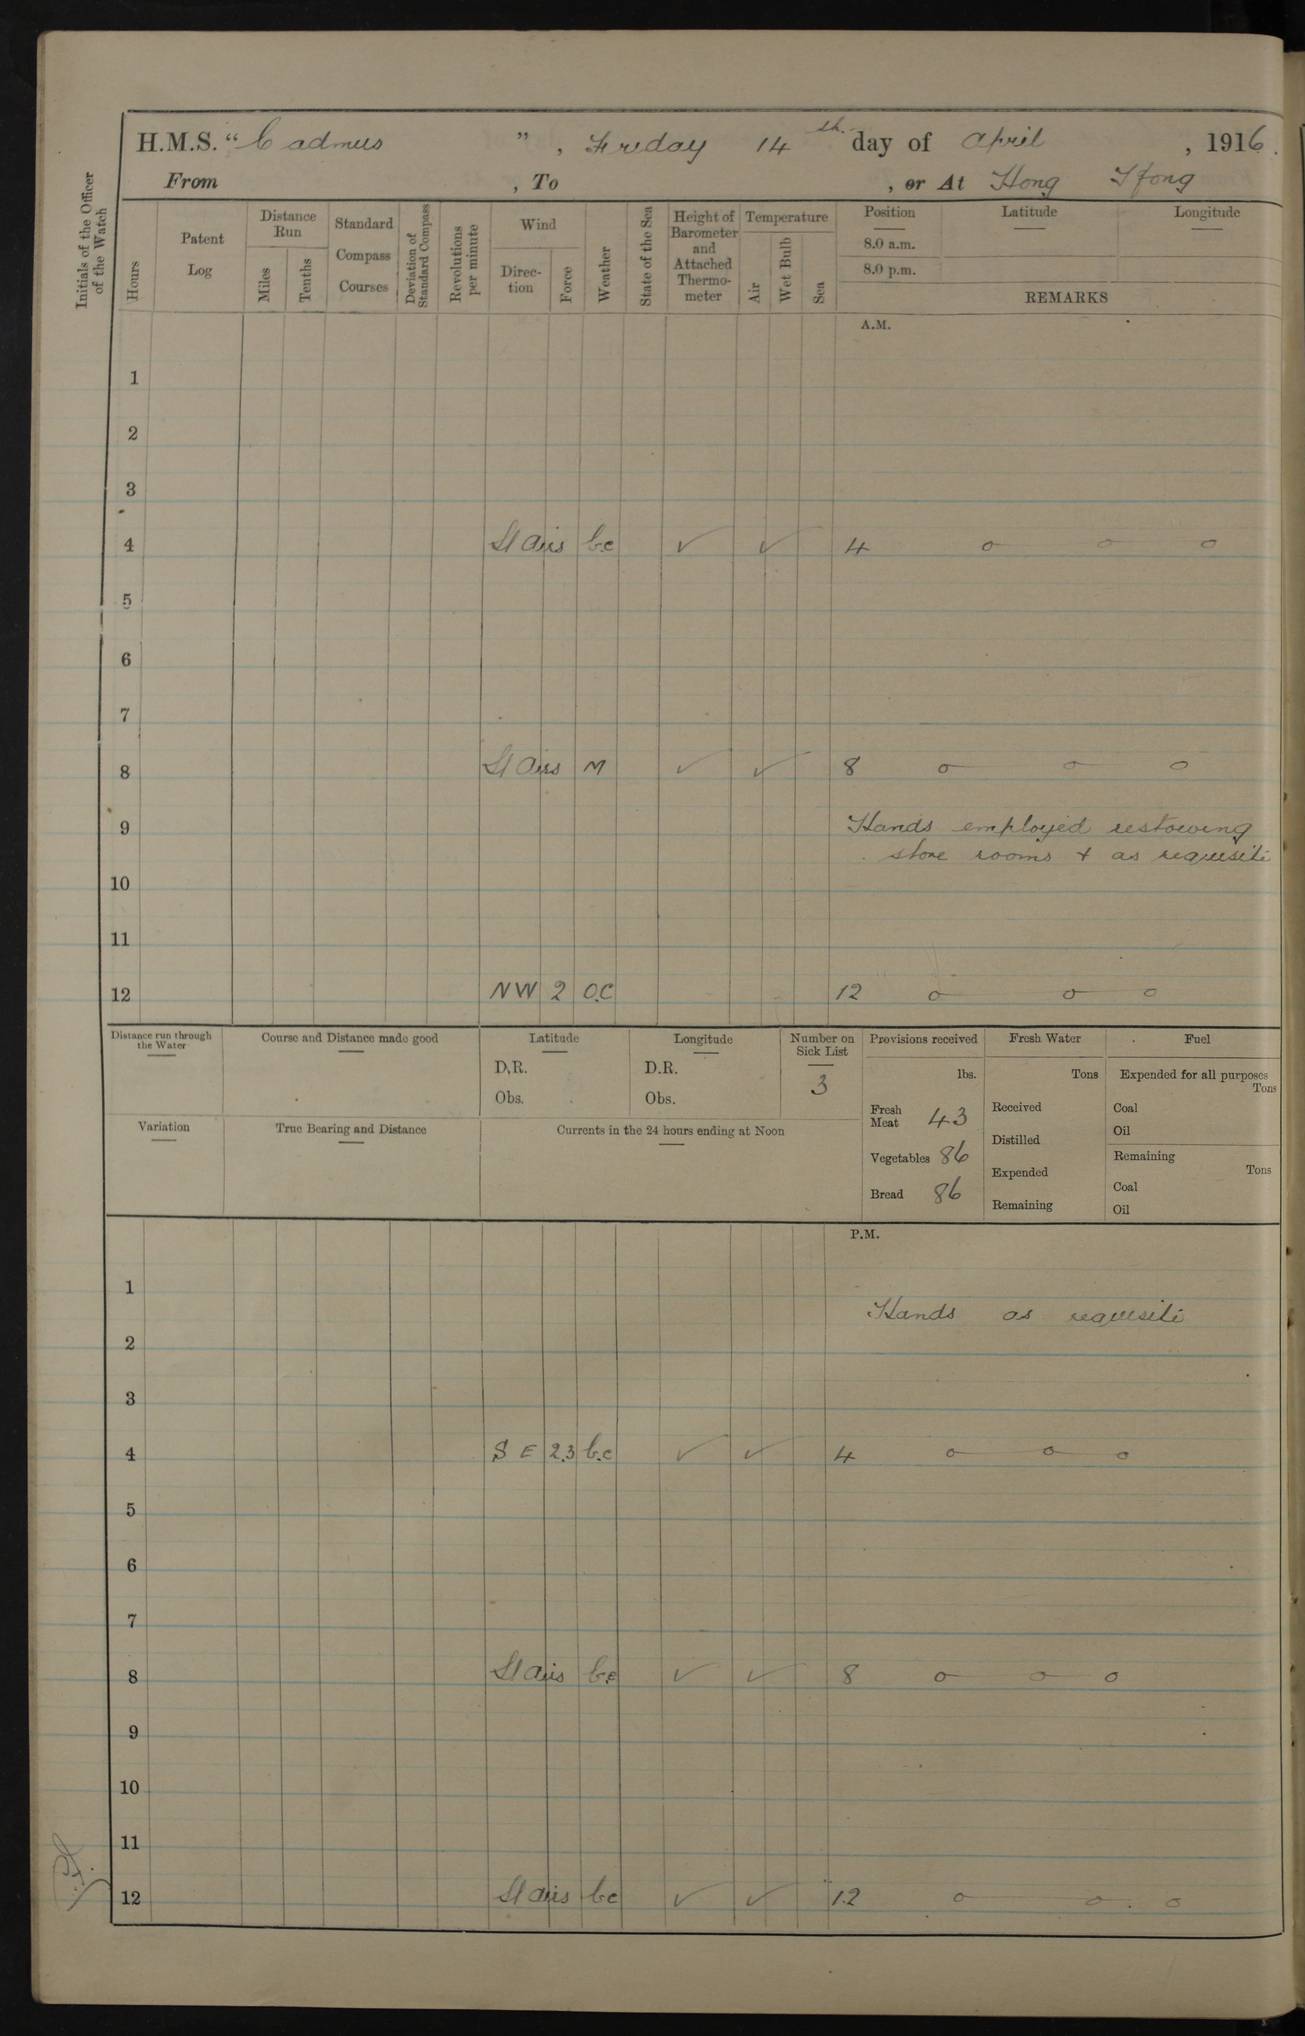 H.M.S. "Cadmus", Friday 14th day of April, 1916.
From , To , or At Hong Kong
Initials of the Officer of the Watch
Hours
Patent Log
Distance Run
Miles
Tenths
Standard Compass Courses
Deviation of Standard Compass
Revolutions per minute
Wind
Direc-tion
Force
Weather
State of the Sea
Height of Barometer and Attached Thermo-meter
Temperature
Air
Wet Bulb
Sea
Position Latitude Longitude
8.0 a.m.
8.0 p.m.
REMARKS
A.M.
1
2
3
4 Lt airs b.c ✓ ✓ 4 o o o
5
6
7
8 Lt airs M ✓ ✓ 8 o o o
9 Hands employed restowing
store rooms + as requisite
10
11
12 NW 2 O.C 12 o o o
Distance run through the Water
Course and Distance made good
Latitude
D.R.
Obs.
Longitude
D.R.
Obs.
Number on Sick List
3
Variation
True Bearing and Distance
Currents in the 24 hours ending at Noon
Provisions received
lbs.
Fresh Meat 43
Vegetables 86
Bread 86
Fresh Water
Tons
Received
Distilled
Expended
Remaining
Fuel
Expended for all purposes
Tons
Coal
Oil
Remaining
Tons
Coal
Oil
P.M.
1
Hands as requisite
2
3
4 S E 2.3 b.c ✓ ✓ 4 o o o
5
6
7
8 Lt airs b.c ✓ ✓ 8 o o o
9
10
11
12 Lt airs b.c ✓ ✓ 12 o o o